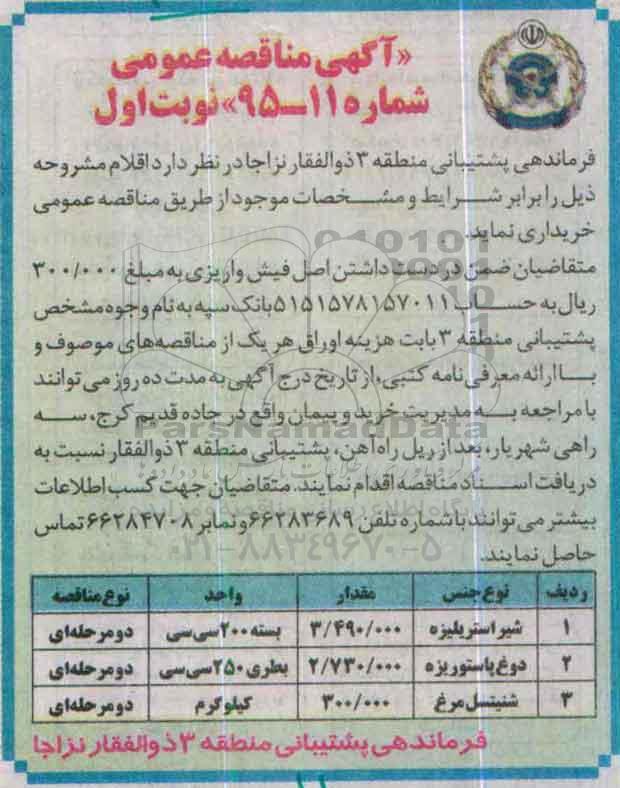 «آگهی مناقصه عمومی
شماره ۱۱ــ۹۵» نوبت اول
فرماندهی پشتیبانی منطقه ۳ ذوالفقار نزاجا در نظر دارد اقلام مشروحه
ذیل را برابر شرایط و مشخصات موجود از طریق مناقصه عمومی
خریداری نماید.
متقاضیان ضمن در دست داشتن اصل فیش واریزی به مبلغ ۳۰۰/۰۰۰
ریال به حساب ۵۱۵۱۵۷۸۱۵۷۰۱۱ بانک سپه به نام وجوه مشخص
پشتیبانی منطقه ۳ بابت هزینه اوراق هر یک از مناقصه‌های موصوف و
با ارائه معرفی نامه کتبی، از تاریخ درج آگهی به مدت ده روز می توانند
با مراجعه به مدیریت خرید و پیمان واقع در جاده قدیم کرج، سه
راهی شهریار، بعد از ریل راه آهن، پشتیبانی منطقه ۳ ذوالفقار نسبت به
دریافت اسناد مناقصه اقدام نمایند. متقاضیان جهت کسب اطلاعات
بیشتر می توانند با شماره تلفن ۶۶۲۸۳۶۸۹ و نمابر ۶۶۲۸۴۷۰۸ تماس
حاصل نمایند.
ردیف نوع جنس مقدار واحد نوع مناقصه
۱ شیر استریلیزه ۳/۴۹۰/۰۰۰ بسته ۲۰۰ سی سی دو مرحله‌ای
۲ دوغ پاستوریزه ۲/۷۳۰/۰۰۰ بطری ۲۵۰ سی سی دو مرحله‌ای
۳ شنیتسل مرغ ۳۰۰/۰۰۰ کیلوگرم دو مرحله‌ای
فرماندهی پشتیبانی منطقه ۳ ذوالفقار نزاجا
ParsNamadData
۰۲۱-۸۸۳۴۹۶۷۰-۵